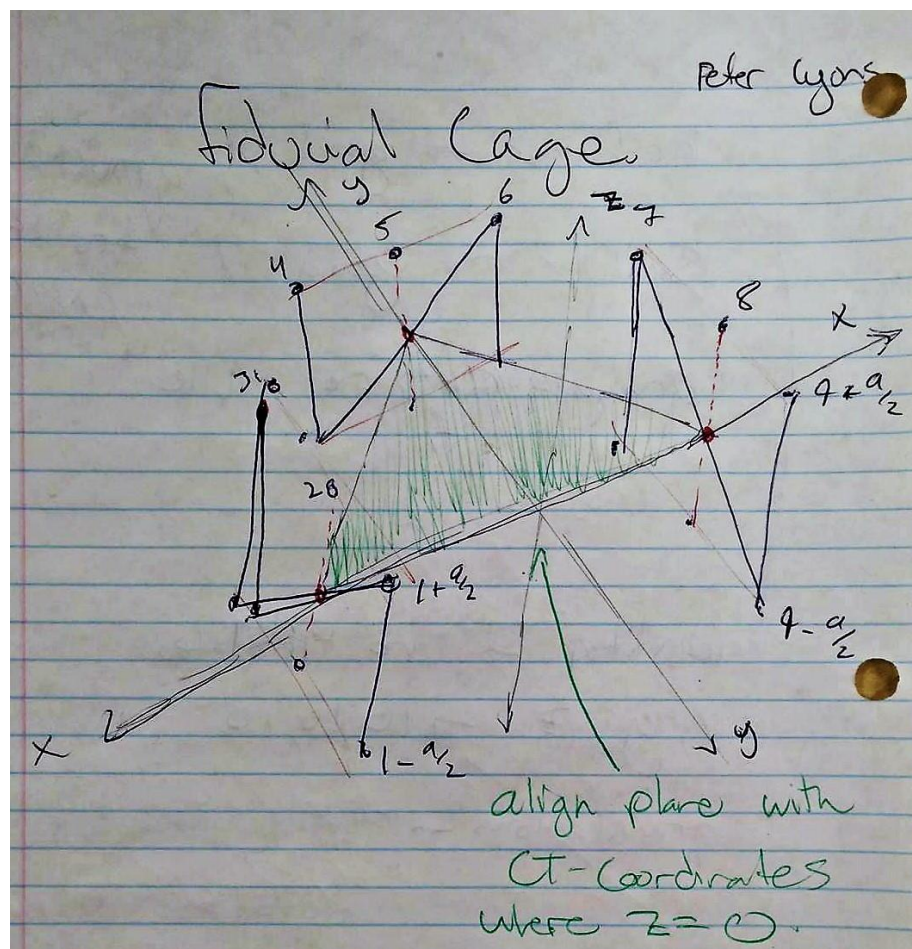 Peter Lyons
Fiducial Cage.
y
z
4
5
6
7
8
x
3
9 + a/2
2
1 + a/2
9 - a/2
1 - a/2
x
y
align plane with
CT-Coordinates
where z=0.